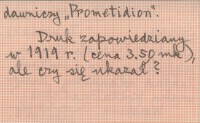 dawniczy „Prometidion".
Druk zapowiedziany
w 1919 r. (cena 3.50 mk),
ale czy się ukazał?